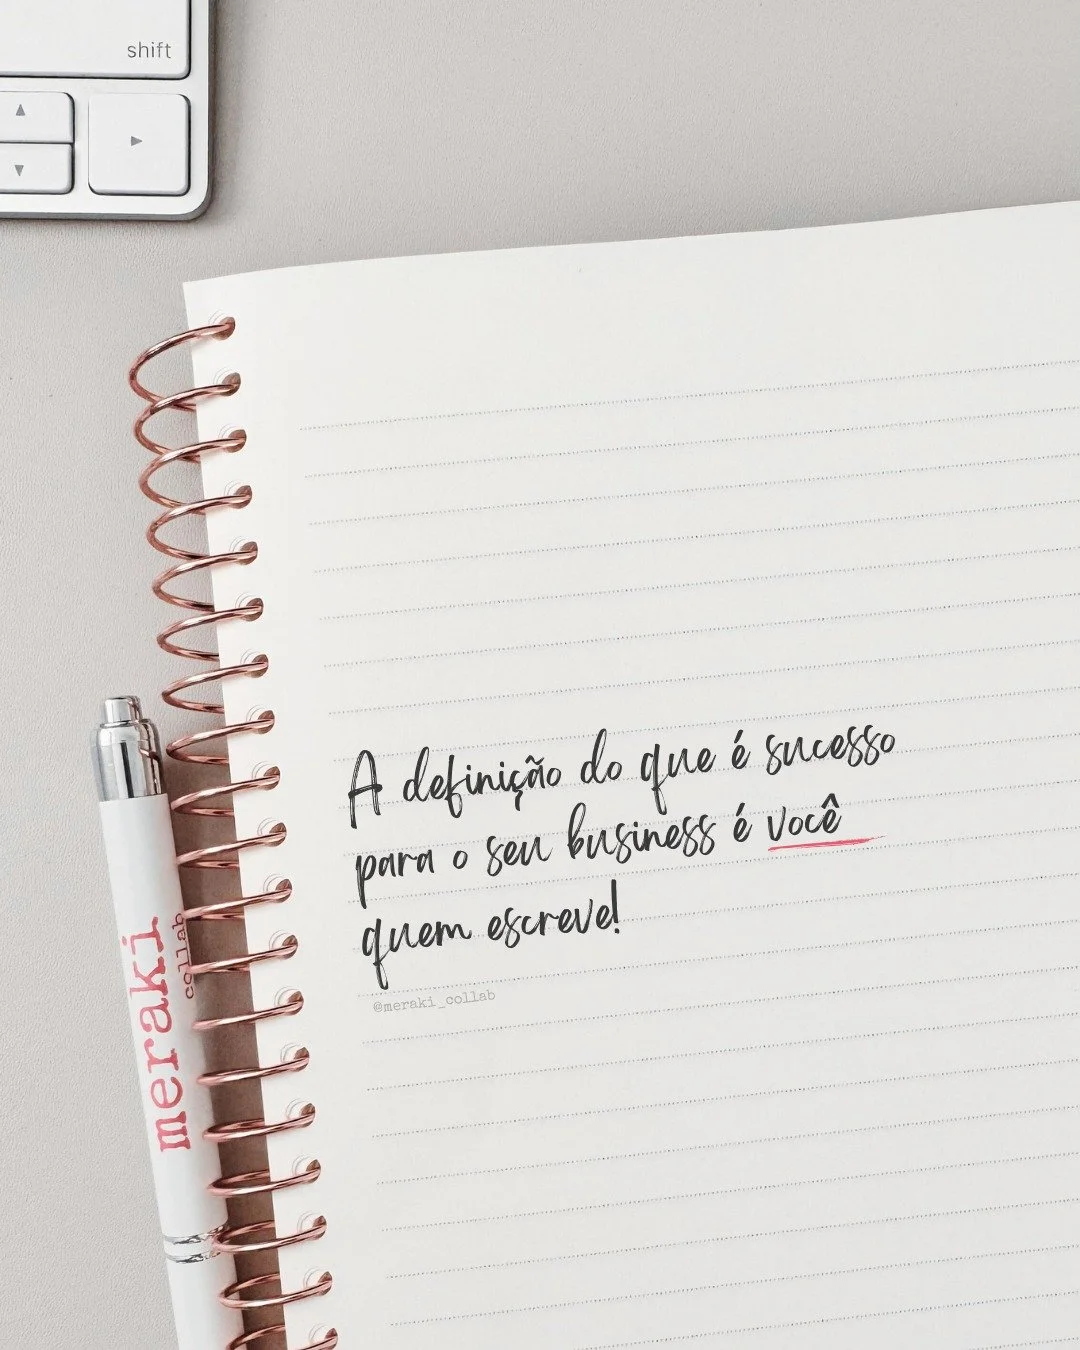 shift
A definição do que é sucesso
para o seu business é você
quem escreve!
@meraki_collab
meraki
collab